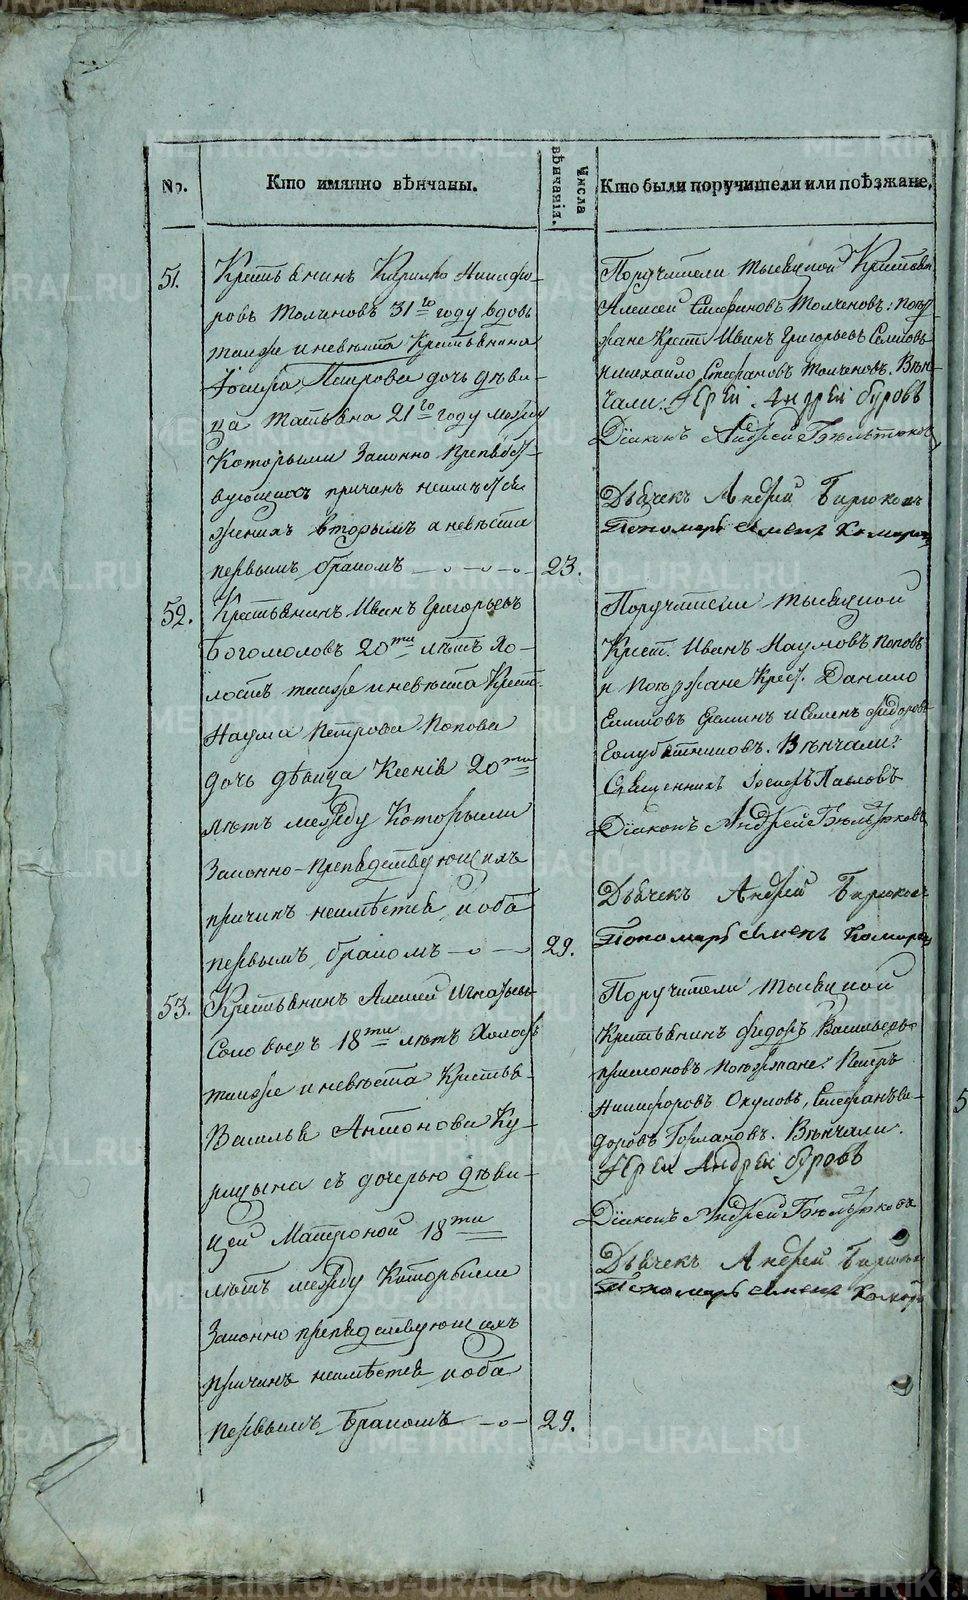 №.
Кто имянно вѣнчаны.
Числа вѣнчанія.
Кто были поручители или поѣзжане.
51.
Крестьянинъ Кирилло Никифо-
ровъ Толченовъ 31го году вдовъ
также и невѣста Крестьянина
Іосифа Лаврова дочь дѣви-
ца Татьяна 21го году между
Которыми Законно препятст-
вующихъ причин неимѣется
женихъ вторымъ а невѣста
первымъ бракомъ
23.
Поручители тысяцкой Крестьян.
Алексей Стефановъ Толченовъ: поѣз-
жане Крест. Иванъ Григорьевъ
и михайло Стефановъ Толченовъ. Вѣн-
чали: Іерей Андрей Буровъ
Діаконъ Андрей
Дьячекъ Андрей Бирюковъ
Пономарь Семенъ
52.
Крестьянинъ Иванъ Григорьевъ
Богомоловъ 20ти лѣтъ хо-
лостъ также и невѣста Крест.
Наума Петрова Попова
дочь дѣвица Ксенія 20ти
лѣтъ между Которыми
Законно-препядствующихъ
причинъ неимѣется и оба
первымъ бракомъ
29.
Поручители тысяцкой
Крест. Иванъ Наумовъ Поповъ
и Поѣзжане Крес. Данило
и Семенъ Федоровъ
Вѣнчали:
Священникъ Іосифъ Павловъ
Діаконъ Андрей
Дьячекъ Андрей Бирюков
Пономарь Семенъ
53.
Крестьянинъ Алексей Игнатьевъ
Соловьевъ 18ти лѣтъ Холостъ
также и невѣста Крестья-
Василья Антонова Ку-
рицына съ дочерью дѣви-
цей Матроной 18ти
лѣтъ между Которыми
Законно препядствующихъ
причинъ неимѣется и оба
первымъ бракомъ
29.
Поручители тысяцкой
Крестьянинъ Федоръ Васильевъ
Поѣзжане: Петръ
Никифоровъ Окуловъ, Стефанъ Си-
доровъ. Вѣнчали:
Іерей Андрей Буровъ
Діаконъ Андрей
Дьячекъ Андрей Бирюков
Пономарь Семенъ
METRIKI.GASO-URAL.RU